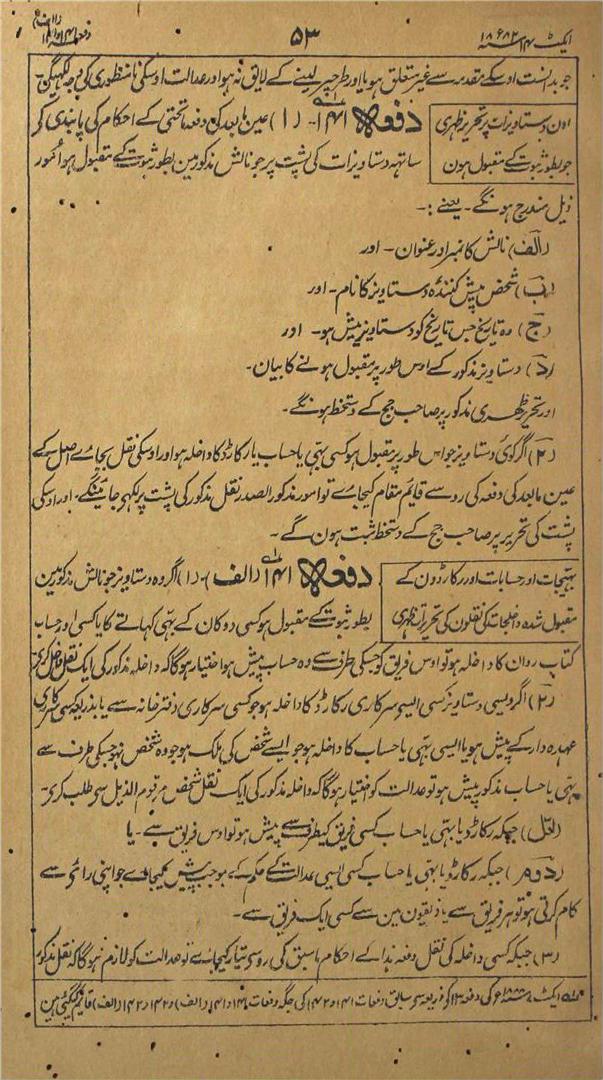 ایکٹ ۱۴ سنہ ۱۸۸۲ء
۵۳
جو بدانست اوسکے مقدمہ سے غیر متعلق ہو یا اور طرحپر لینے کے لایق نہ ہو اور عدالت اوسکی نامنظوری کی وجہ لکھیگی۔
اون دستاویزات پر تحریر ظہری
جو بطور ثبوت کے مقبول ہون
دفعہ ۱۴۱۔ (۱) عین مابعد کی دفعہ تحتی کے احکام کی پابندی کے
ساتھہ دستاویزات کی پشت پر جو نالش مذکور مین بطور ثبوت کے مقبول ہو امور
ذیل مندرج ہونگے۔ یعنے :۔
(الف) نالش کا نمبر اور عنوان۔ اور
(ب) شخص پیش کنندہ دستاویز کا نام۔ اور
(ج) وہ تاریخ جس تاریخ کو دستاویز پیش ہو۔ اور
(د) دستاویز مذکور کے اوس طور پر مقبول ہونے کا بیان۔
اور تحریر ظہری مذکور پر صاحب جج کے دستخط ہونگے۔
(۲) اگر کوئی دستاویز جو اس طور پر مقبول ہو کسی بہی یا حساب یا رکارڈ کا داخلہ ہو اور اوسکی نقل بجاے اصل کے
عین مابعد کی دفعہ کی رو سے قایم مقام کیجاے تو امور مذکور الصدر نقل مذکور کی پشت پر لکھی جائینگے۔ اور اوسکی
پشت کی تحریر پر صاحب جج کے دستخط ثبت ہون گے۔
بہیجات اور حسابات اور رکارڈون کے
مقبول شدہ داخلجات کی نقلون کی تحریرات ظہری
دفعہ ۱۴۱ (الف)۔ (۱) اگر وہ دستاویز جو نالش مذکور مین
بطور ثبوت کے مقبول ہو کسی دوکان کے بہی کہاتے کا یا کسی اور حساب
کتاب روان کا داخلہ ہو تو اوس فریق کو جسکی طرف سے وہ حساب پیش ہوا اختیار ہوگا کہ داخلہ مذکور کی ایک نقل داخل کرے
(۲) اگر ویسی دستاویز کسی ایسی سرکاری رکارڈ کا داخلہ ہو جو کسی سرکاری دفتر خانہ سے یا بذریعہ کسی سرکاری
عہدہ دار کے پیش ہو یا ایسی بہی یا حساب کا داخلہ ہو جو ایسے شخص کی ملک ہو جو وہ شخص نہو جسکی طرف سے
بہی یا حساب مذکور پیش ہو تو عدالت کو اختیار ہوگا کہ داخلہ مذکور کی ایک نقل شخص مرقوم الذیل سی طلب کرے۔
(اول) جبکہ رکارڈ یا بہی یا حساب کسی فریق کیطرف سے پیش ہو تو اوس فریق سے۔ یا
(دوم) جبکہ رکارڈ یا بہی یا حساب کسی ایسی عدالت کے حکم کے بموجب پیش کیجاے جو اپنی رائے سے
کام کرتی ہو تو ہر فریق سے یا فریقون مین سے کسی ایک فریق سے۔
(۳) جبکہ کسی داخلہ کی نقل دفعہ ہذا کے احکام ماسبق کی رو سی تیار کیجاے تو عدالت کو لازم ہوگا کہ نقل مذکور
ایکٹ ۱۸۸۸ء کی دفعہ ۱۳ کے ذریعہ سی سابق دفعات ۱۴۱ و ۱۴۲ کی جگہ دفعات ۱۴۱ و ۱۴۱ (الف) و ۱۴۲ و ۱۴۲ (الف) قایم کیگئی ہین